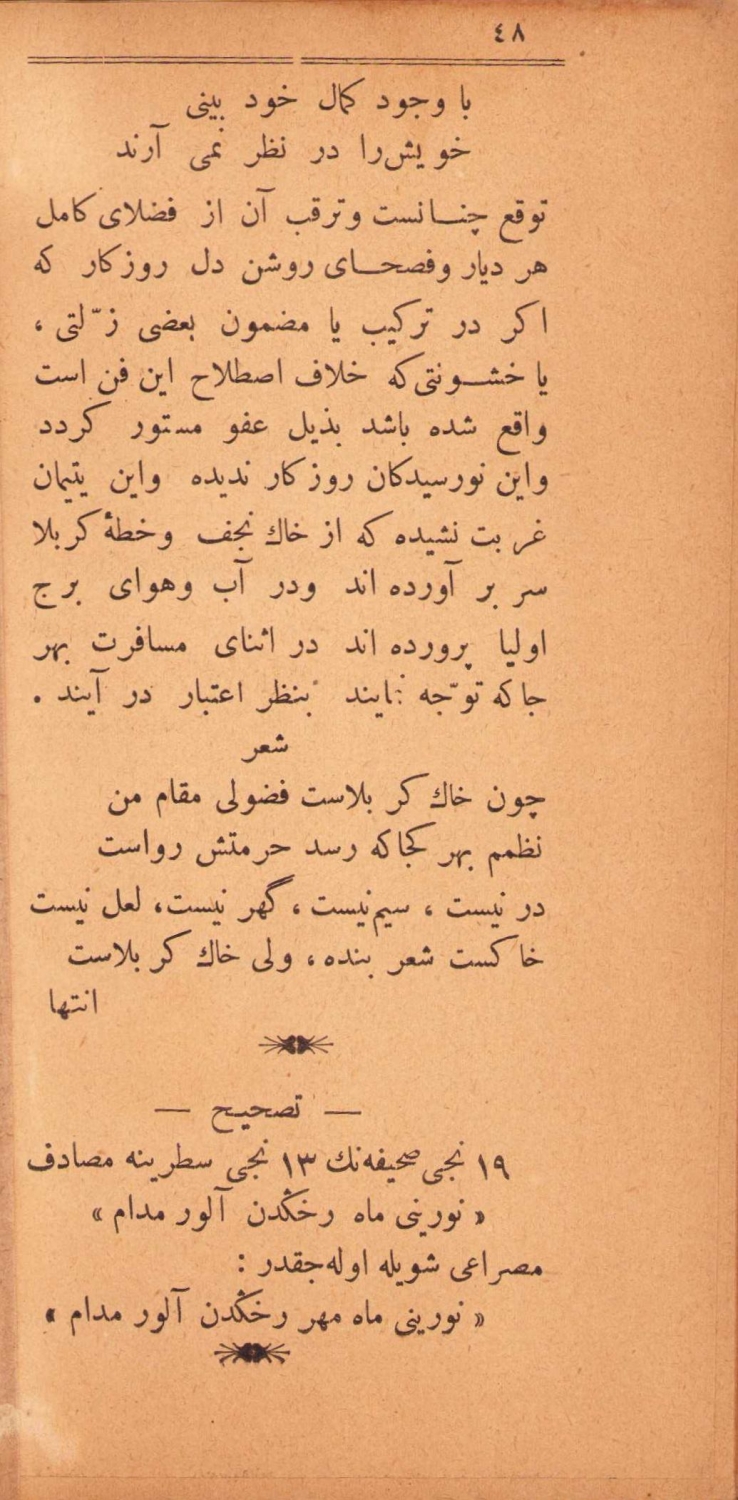 ٤٨
با وجود کمال خود بینی
خویش‌را در نظر نمی آرند
توقع چنــانست وترقب آن از فضلای کامل
هر دیار وفصحــای روشن دل روزکار که
اکر در ترکیب یا مضمون بعضی زّلتی ،
یا خشــونتی‌که خلاف اصطلاح این فن است
واقع شده باشد بذیل عفو مستور کردد
واین نورسیدکان روزکار ندیده واین یتیمان
غربت نشیده که از خاك نجف وخطهٔ کربلا
سر بر آورده اند ودر آب وهوای برج
اولیا پرورده اند در اثنای مسافرت بهر
جاکه توّجه نمایند بنظر اعتبار در آیند .
شعر
چون خاك کربلاست فضولی مقام من
نظمم بهر کجاکه رسد حرمتش رواست
در نیست ، سیم‌نیست ، گهر نیست، لعل نیست
خاکست شعر بنده ، ولی خاك کربلاست
انتها
— تصحیح —
١٩ نجی صحیفه‌نك ١٣ نجی سطرینه مصادف
« نورینی ماه رخڭدن آلور مدام »
مصراعی شویله اوله‌جقدر :
« نورینی ماه مهر رخڭدن آلور مدام »